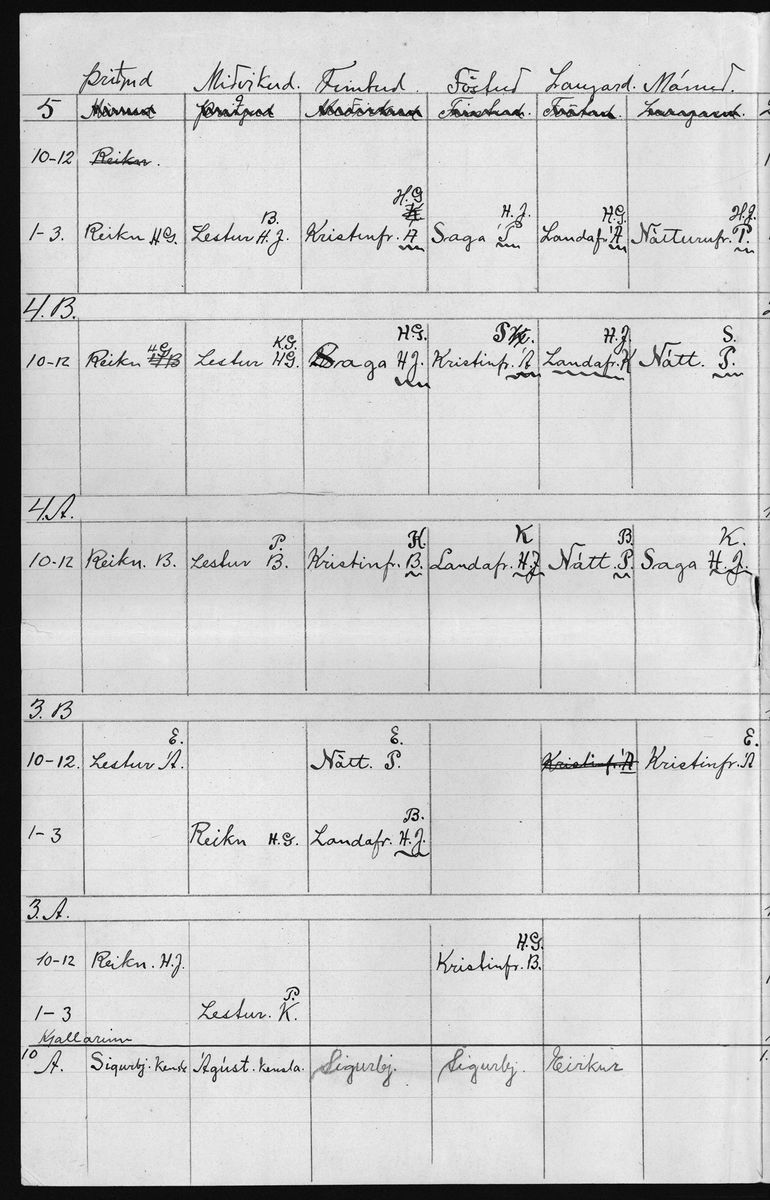 Þriðjud Miðvikud. Fimtud. Föstud Laugard. Mánud.
5 Mánud Þriðjud Miðvikud Fimtud. Föstud. Laugard.
10-12 Reikn.
H.G
B. H. J. H.G. H.J.
1-3. Reikn H.G. Lestur H.J. Kristinfr. Á Saga P Landafr. Á Nátturufr. P.
4.B.
H.G. K.G. H.G. P H.J. S.
10-12 Reikn B Lestur H.G. Saga H.J. Kristinfr. Á Landafr. K Nátt. P.
4.A.
P. K. K B. K.
10-12 Reikn. B. Lestur B. Kristinfr. B. Landafr. H.J Nátt. P. Saga H. J.
3.B
E. E. E.
10-12. Lestur Á. Nátt. P. Kristinfr. Á Kristinfr. Á
B.
1-3 Reikn H.G. Landafr. H.J.
3.A.
H.G.
10-12 Reikn. H.J. Kristinfr. B.
P.
1-3 Lestur. K.
Kjallarinn
10 A. Sigurbj. kensla Ágúst. kensla. Sigurbj. Sigurbj. Eirikur